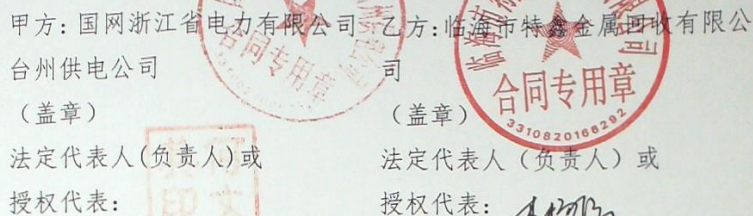 甲方：国网浙江省电力有限公司
台州供电公司
（盖章）
法定代表人(负责人)或
授权代表：
乙方：临海市特鑫金属回收有限公
司
（盖章）
法定代表人（负责人）或
授权代表：
合同专用章
合同专用章
3310820166292